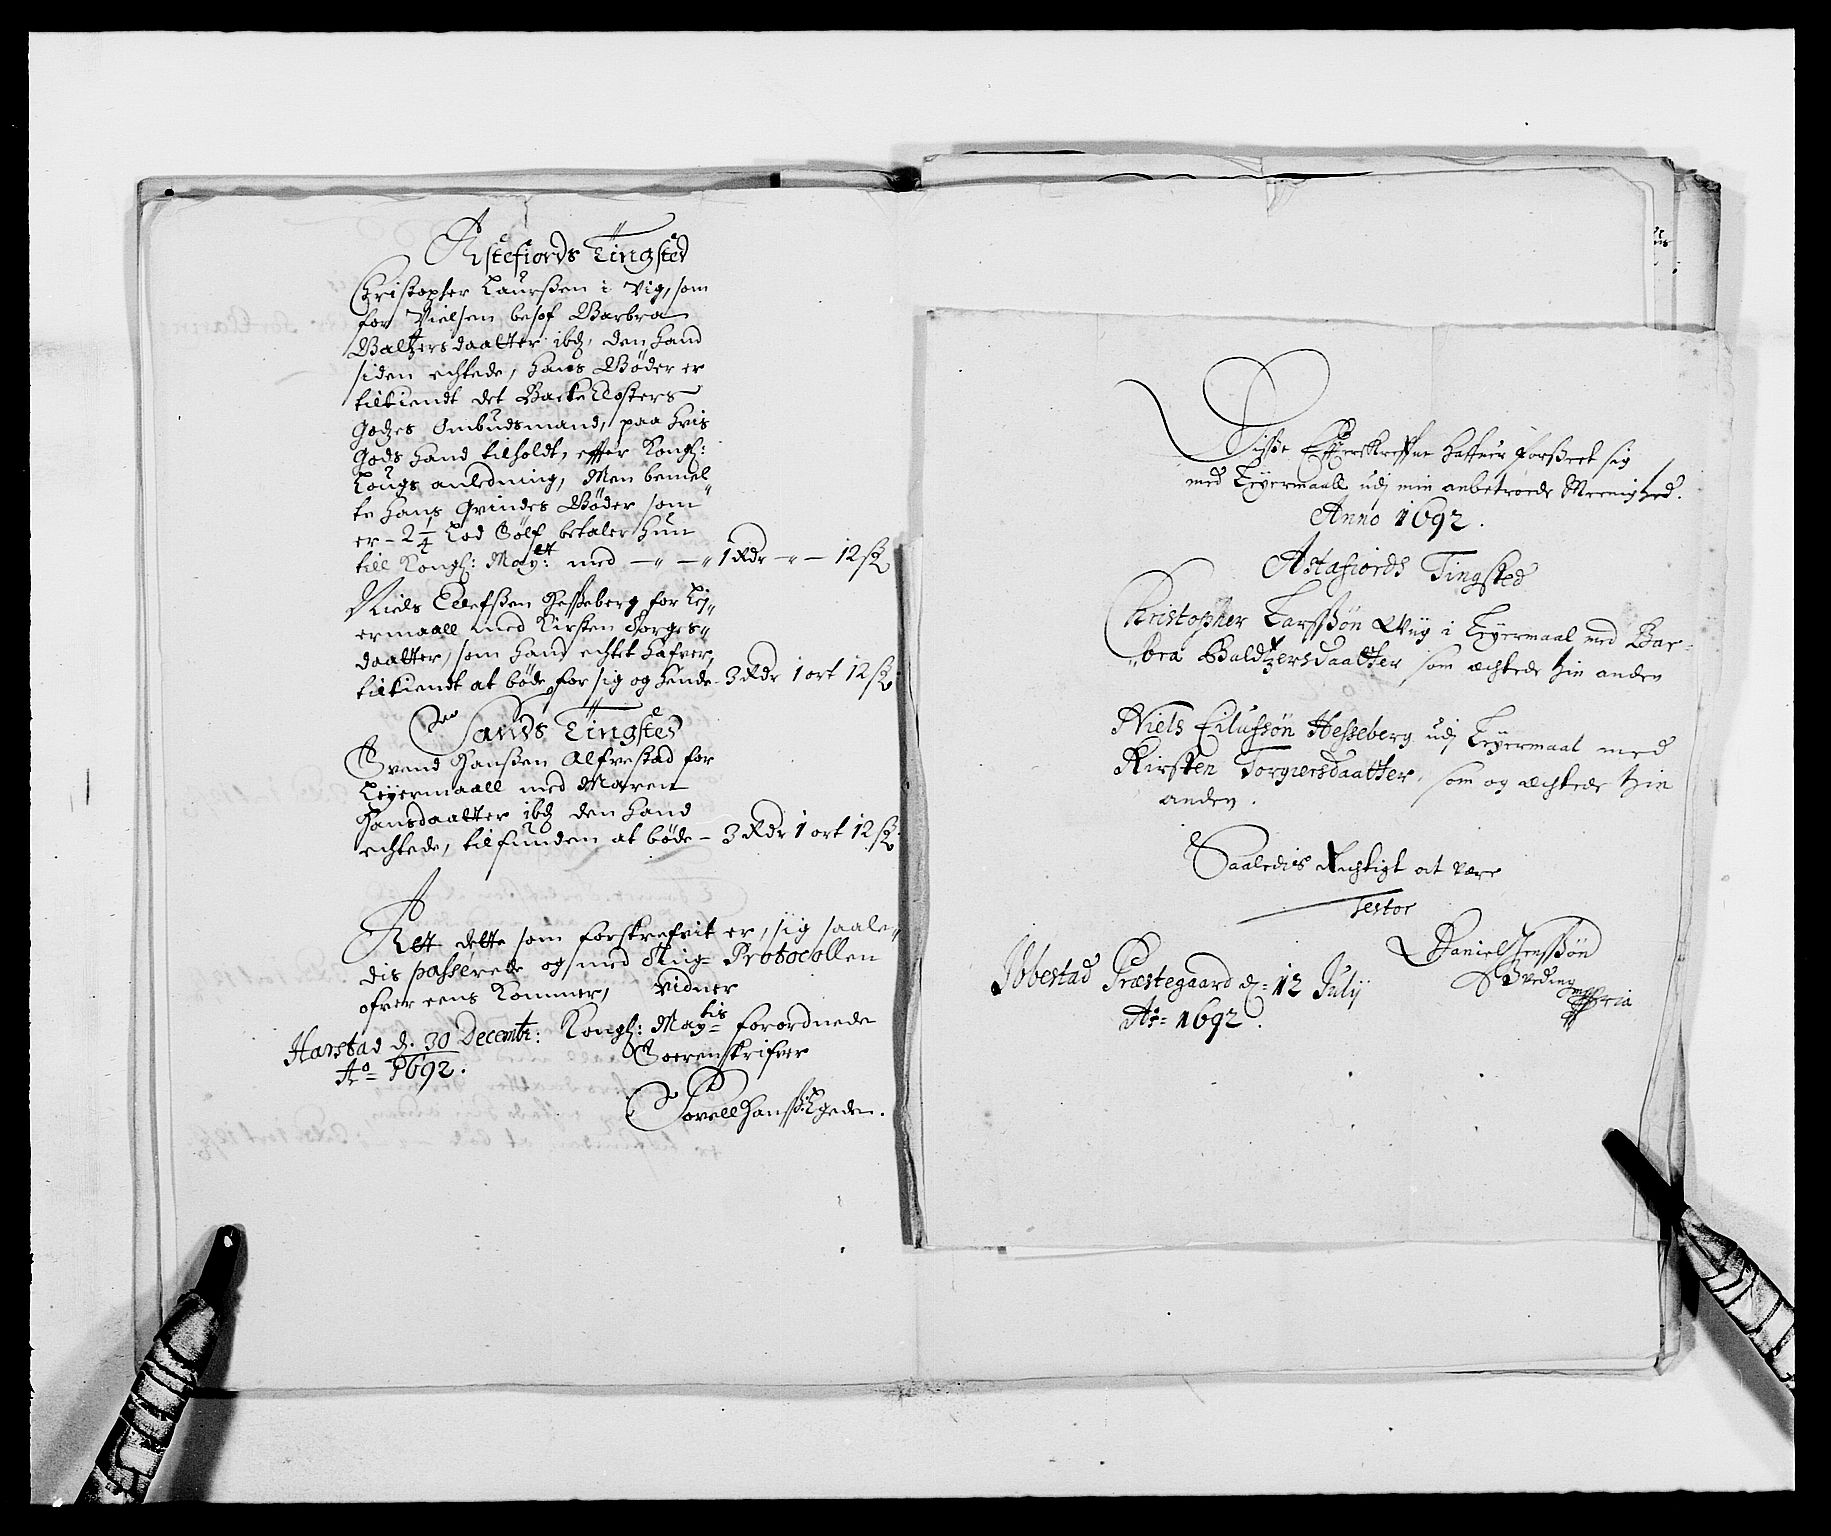 Astefiords Tingsted
Christopher Laurßen i Vig, som
for Vielsen besof Barbra
Baltzersdaatter ibd, den hand
siden echtede, hans Bøder er
tilkiendt det Backe Closters
Godzes Ombudsmand, paa hvis
Gods hand tilholdt, effter Kongl:
Lougs anledning, Men bemel„
te hans Qvindes Bøder som
er - 2 1/4 Lod Sølf betaler hun
till Kongl: Mayt: med — „ — „ 1 Rdr - „ — 12 ß
Niels Ellefßen Hesseberg for Ley„
ermaall med Kirsten Torges„
daatter, som hand echtet hafver,
tilkiendt at bøde for sig og hende - 3 Rdr 1 ort 12 ß
Sands Tingsted
Svend Hanßen Alfvestad for
Leyermaall med Maren
Hansdaatter ibd den hand
echtede, tilfunden at bøde - 3 Rdr 1 ort 12 ß
Att dette som forskrefvit er, sig saale„
dis passerede og med Ting= Protocollen
ofver eens kommer, Vidner
Harstad d. 30 Decembr: Kongl: Maytis forordnede
Ao= 1692. Soerenskrifver
Povell Hanß
Disse Effterskreffne haffuer forßeet sig
med Leyermaall udj min anbetroede Meenighed.
Anno 1692.
Astafiords Tingsted
Christopher Larsßøn Wiig i Leyermaal med Bar-
bra Baldtzersdaatter som æchtede hin anden
Niels Eilufsøn Hesseberg udj Leyermaal med
Kirsten Torgiersdaatter, som og æchtede hin
anden.
Saaledis Richtigt at være
Testor
Ibbestad Præstegaard d= 12 Julij
Ao= 1692.
Daniel Jensßøn